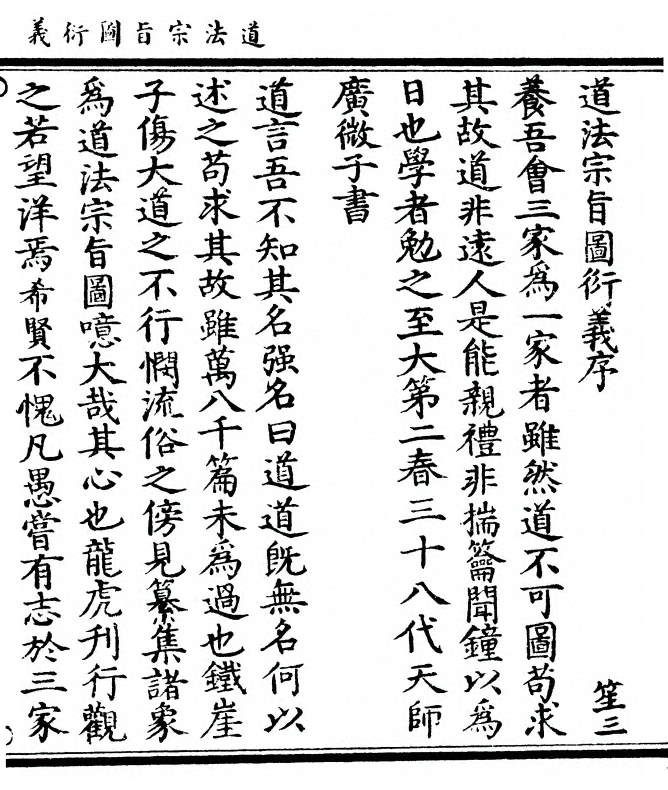 道法宗旨圖衍義
道法宗旨圖衍義序
笙三
養吾會三家爲一家者雖然道不可圖苟求
其故道非遠人是能親禮非揣籥聞鐘以爲
日也學者勉之至大第二春三十八代天師
廣微子書
道言吾不知其名强名曰道道既無名何以
述之苟求其故雖萬八千篇未爲過也鐵崖
子傷大道之不行憫流俗之傍見纂集諸象
爲道法宗旨圖噫大哉其心也龍虎刋行觀
之若望洋焉希賢不愧凡愚嘗有志於三家